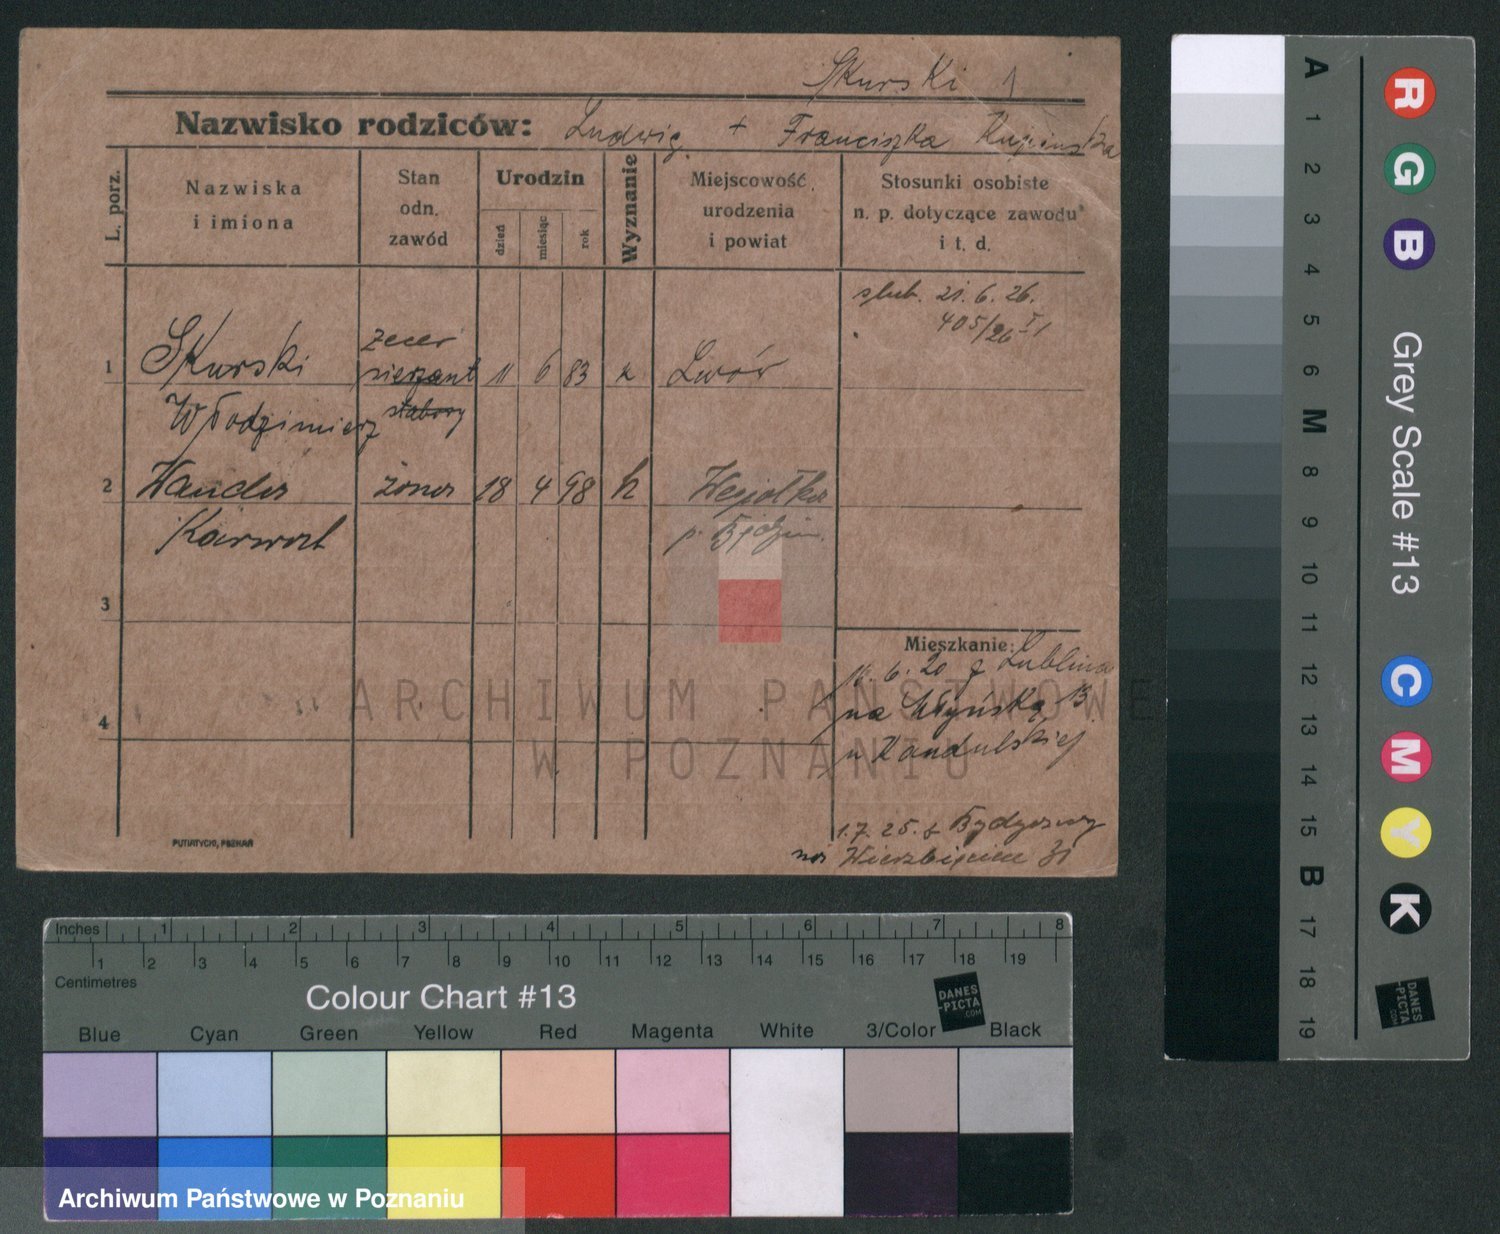 Skurski
Nazwisko rodziców: Ludwig + Franciszka
L. porz.
Nazwiska
i imiona
Stan
odn.
zawód
Urodzin
dzień
miesiąc
rok
Wyznanie
Miejscowość
urodzenia
i powiat
Stosunki osobiste
n. p. dotyczące zawodu
i t. d.
ślub. 21. 6. 26.
405/26
1 Skurski zecer 11 6 83 k Lwów
sierżant
Włodzimierz
2 Wanda żona 18 4 98 k
3
4
Mieszkanie:
6. 20 z Lublina
na
1.7.25. z Bydgoszczy
na Wierzbięcice 31
PUTIATYCKI, POZNAŃ
ARCHIWUM PAŃSTWOWE
W POZNANIU
Inches 1 2 3 4 5 6 7 8
1 2 3 4 5 6 7 8 9 10 11 12 13 14 15 16 17 18 19
Centimetres
Colour Chart #13
DANES
-PICTA
.COM
Blue Cyan Green Yellow Red Magenta White 3/Color Black
Archiwum Państwowe w Poznaniu
A 1 2 3 4 5 6 M 8 9 10 11 12 13 14 15 B 17 18 19
R G B
Grey Scale #13
C M Y K
DANES
-PICTA
.COM